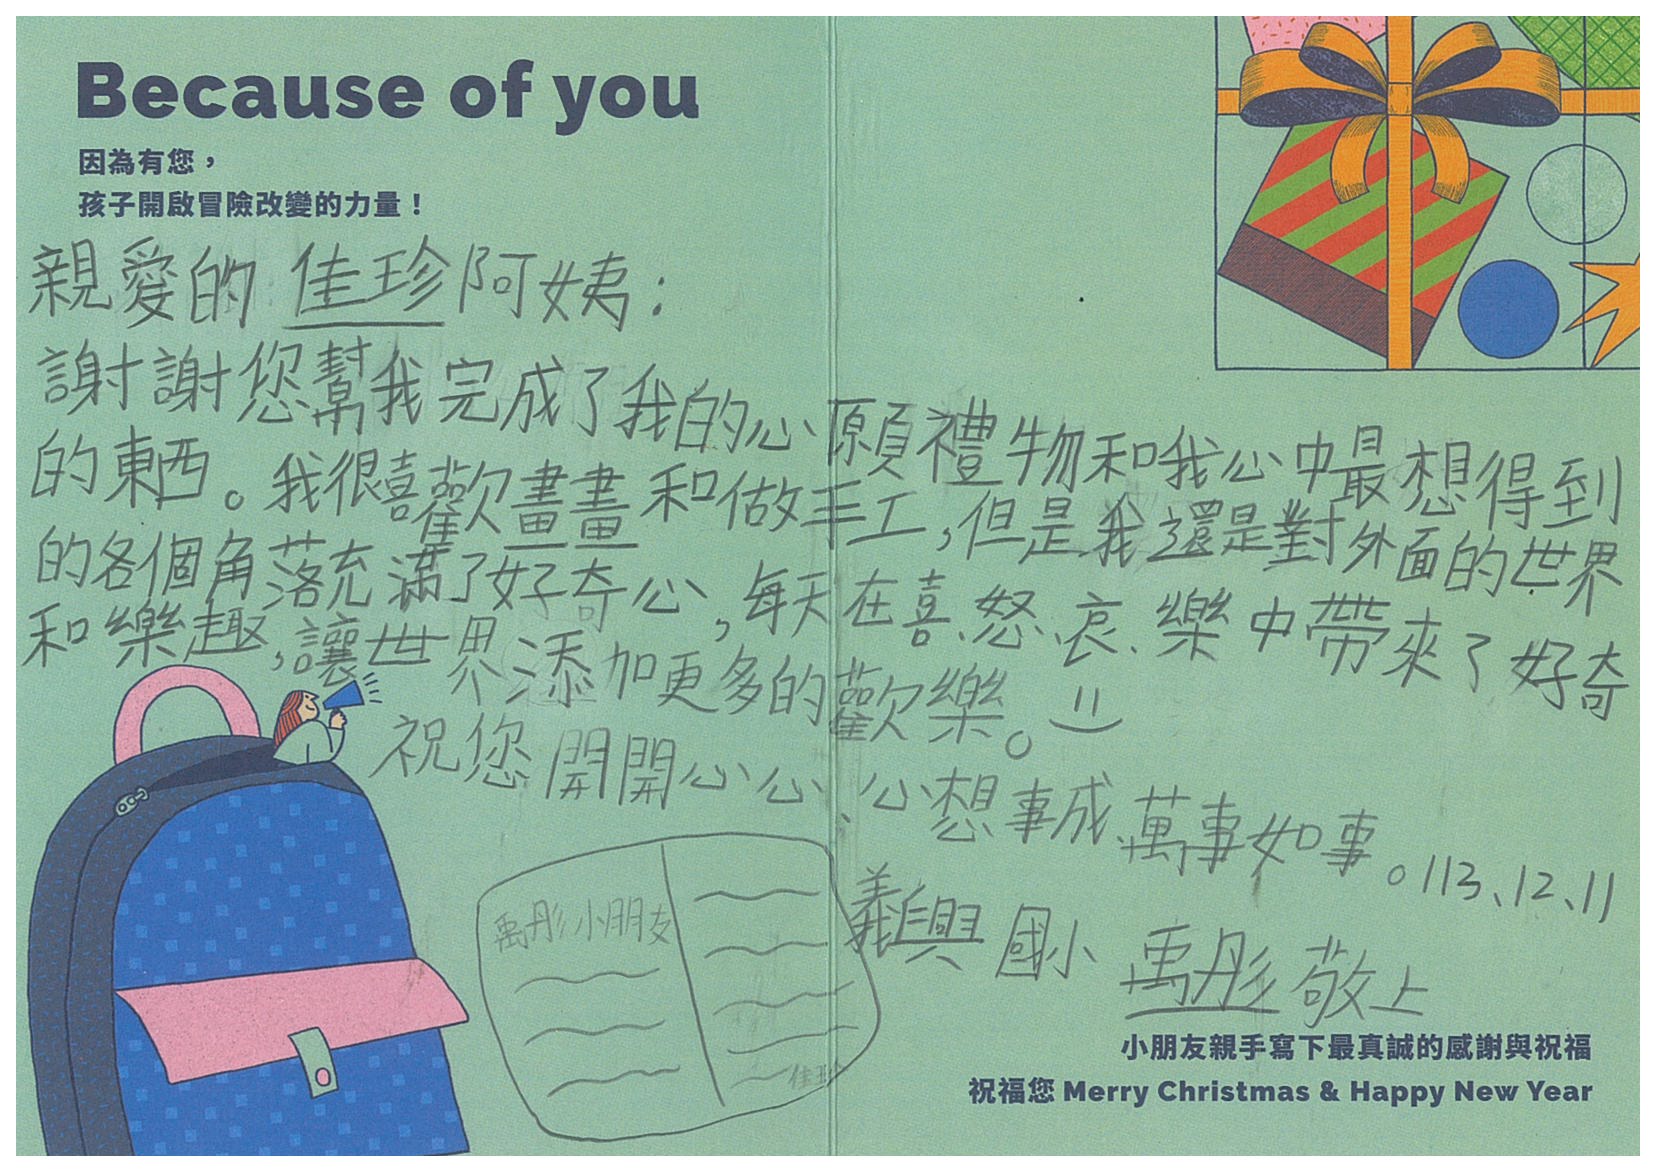 Because of you
因為有您，
孩子開啟冒險改變的力量！
親愛的 佳珍阿姨：
謝謝您幫我完成了我的心願禮物和我心中最想得到
的東西。我很喜歡畫畫和做手工,但是我還是對外面的世界
的各個角落充滿了好奇心,每天在喜、怒、哀、樂中帶來了好奇
和樂趣,讓世界添加更多的歡樂。
祝您開開心心、心想事成、萬事如事。113、12、11
義興國小 禹彤 敬上
禹彤小朋友
佳珍
小朋友親手寫下最真誠的感謝與祝福
祝福您 Merry Christmas & Happy New Year